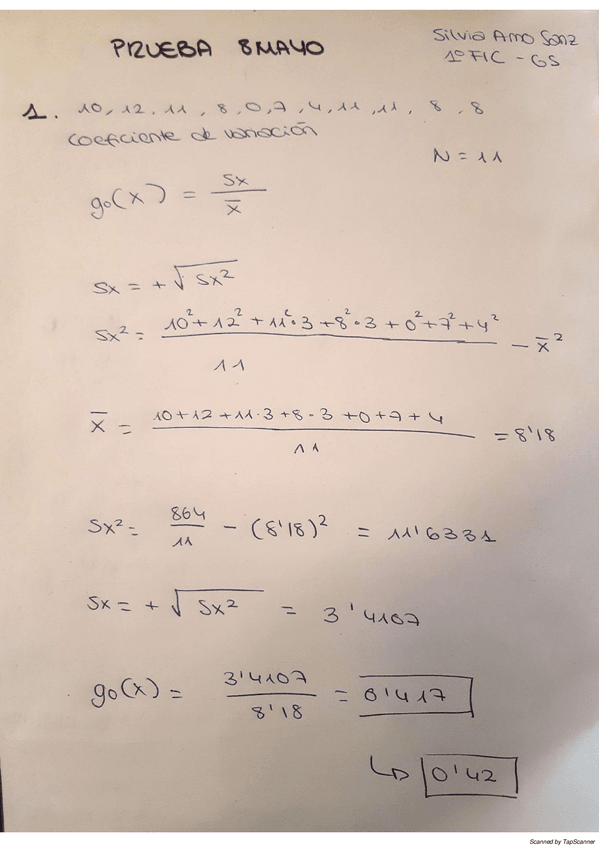 PRUEBA 8 MAYO
Silvia Amo Sanz
1º FIC - GS
1. 10, 12, 11, 8, 0, 7, 4, 11, 11, 8, 8
coeficiente de variación
N = 11
g₀(x) = Sx / x̄
Sx = + √Sx²
Sx² = (10² + 12² + 11²·3 + 8²·3 + 0² + 7² + 4²) / 11 - x̄²
x̄ = (10 + 12 + 11·3 + 8·3 + 0 + 7 + 4) / 11 = 8'18
Sx² = 864 / 11 - (8'18)² = 11'6331
Sx = + √Sx² = 3'4107
g₀(x) = 3'4107 / 8'18 = 0'417
↳ 0'42
Scanned by TapScanner